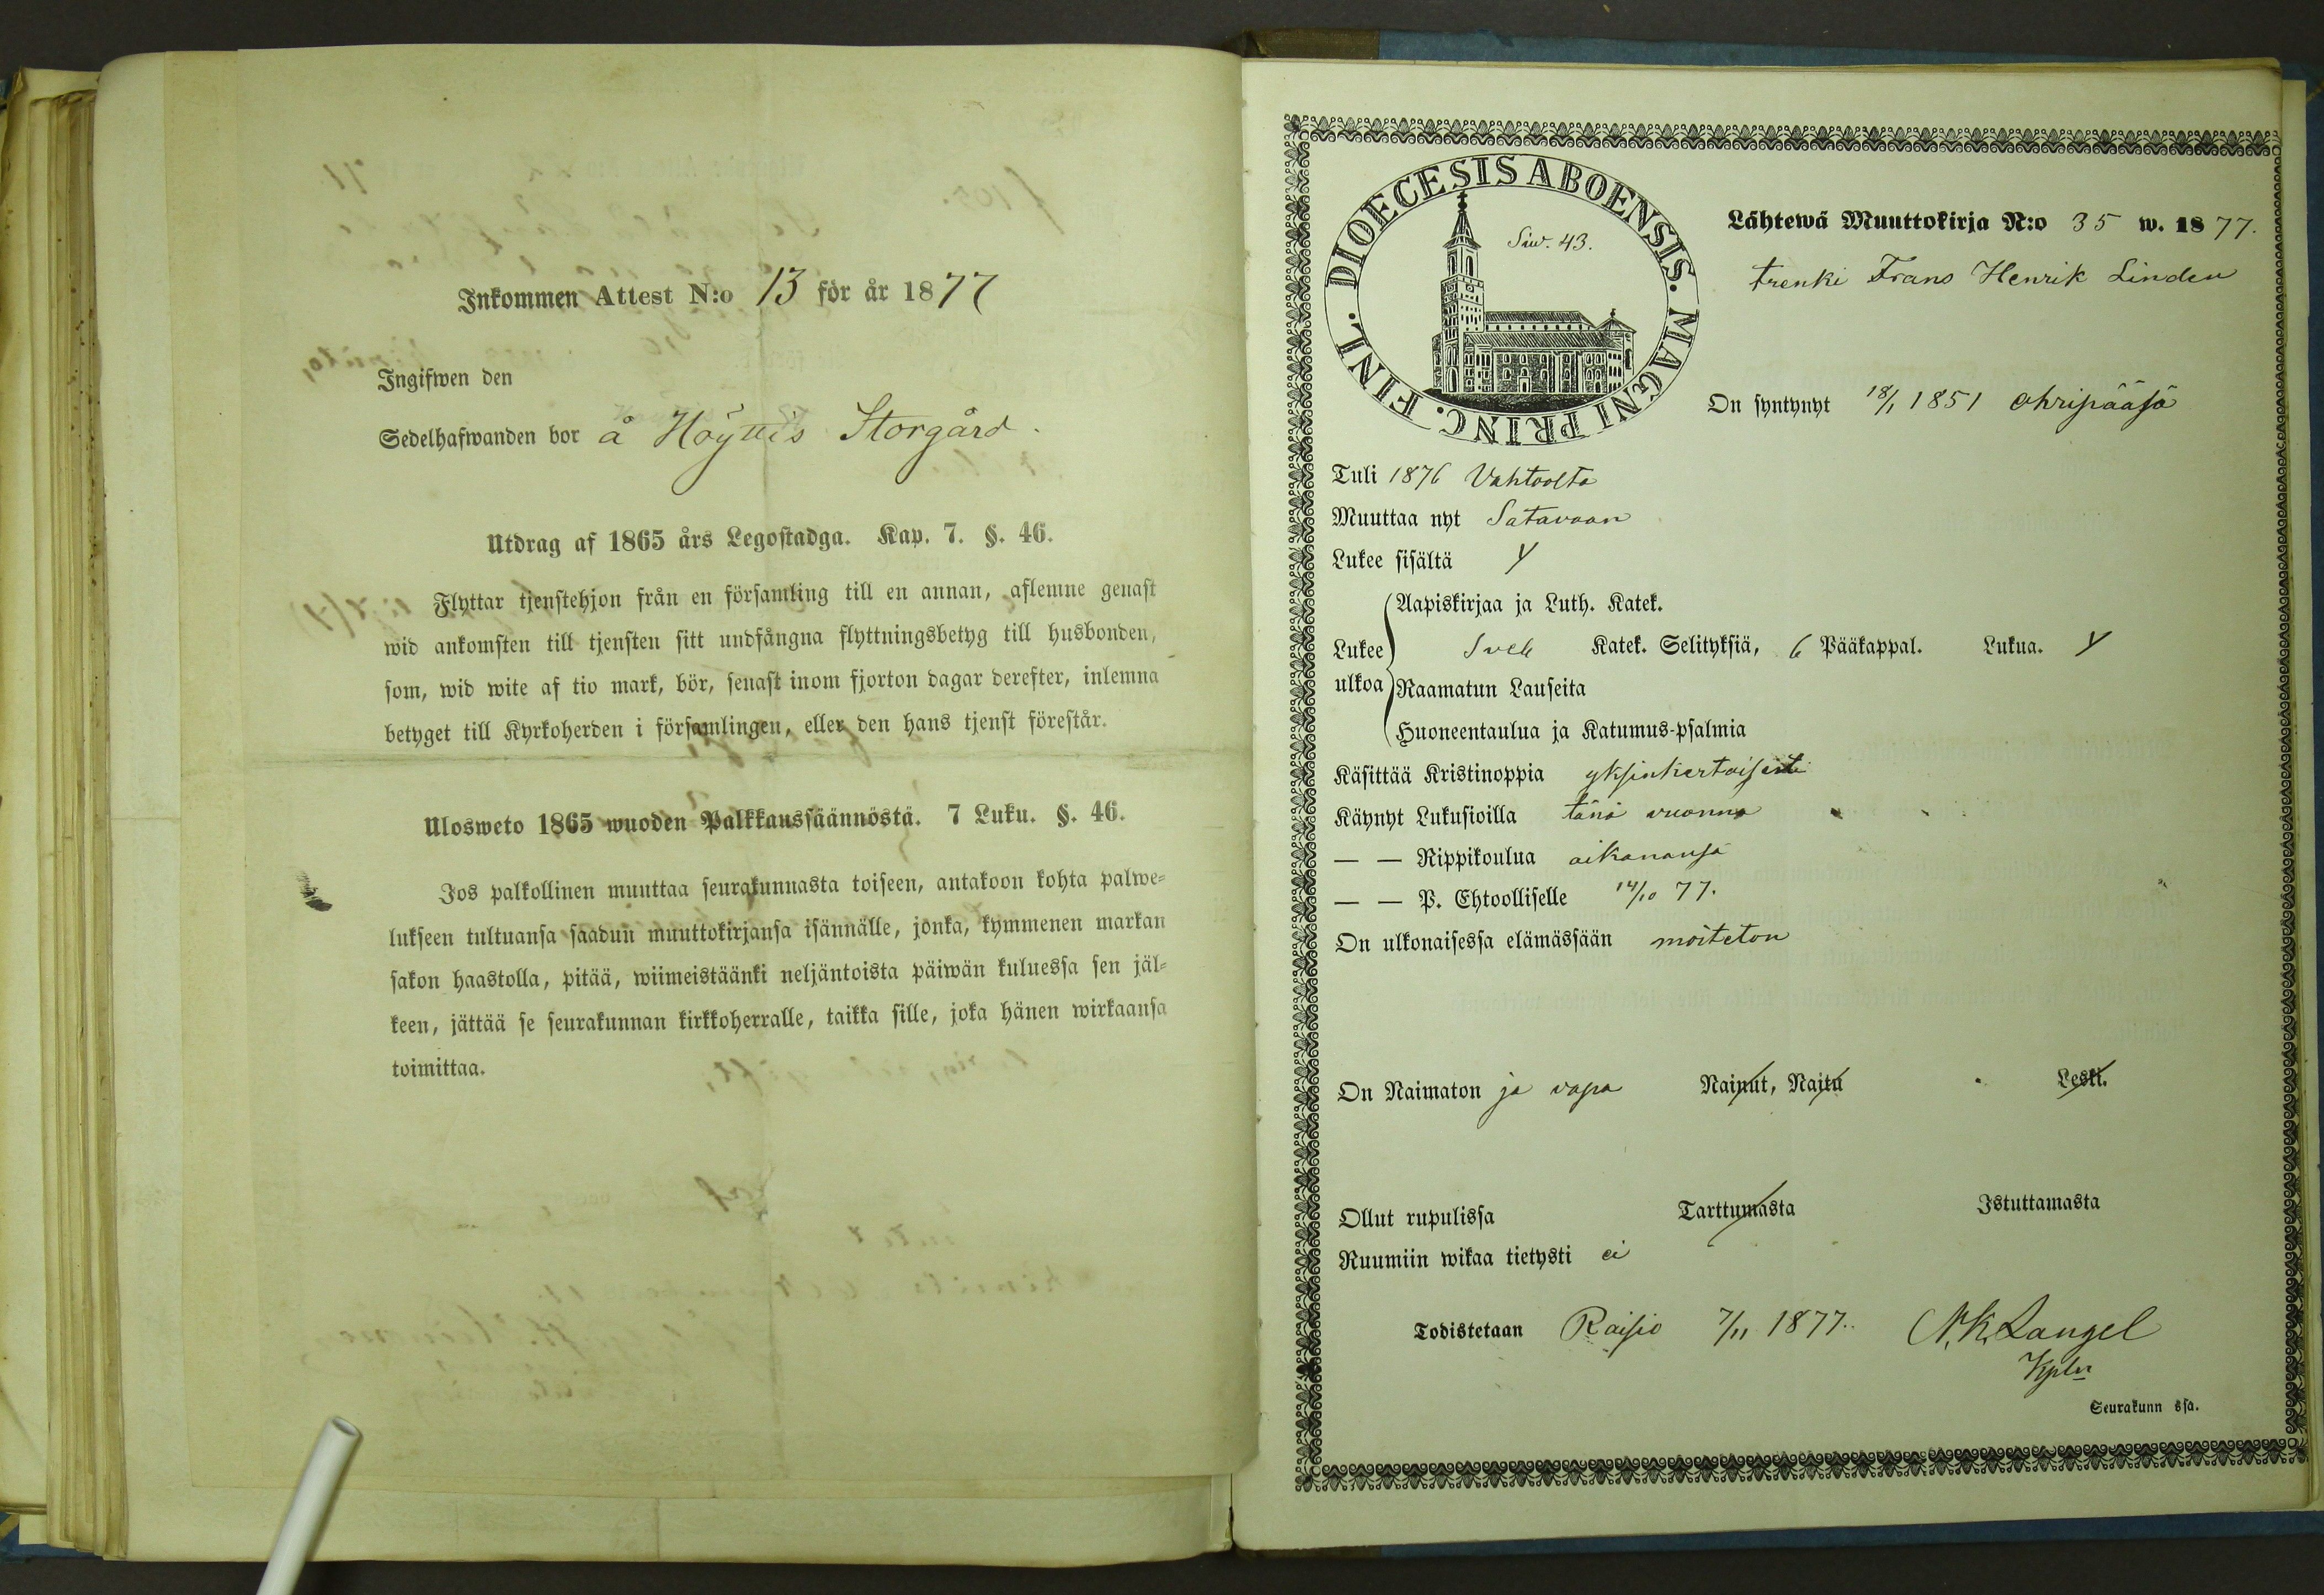 Inkommen Attest N:o 13 för år 1877
Ingifwen den
Sedelhafwanden bor å Höyttis Storgård.
Utdrag af 1865 års Legostadga. Kap. 7. §. 46.
Flyttar tjenstehjon från en församling till en annan, aflemne genast
wid ankomsten till tjensten sitt undfångna flyttningsbetyg till husbonden,
som, wid wite af tio mark, bör, senast inom fjorton dagar derefter, inlemna
betyget till Kyrkoherden i församlingen, eller den hans tjenst förestår.
Ulosweto 1865 wuoden Palkkaussäännöstä. 7 Luku. §. 46.
Jos palkollinen muuttaa seurakunnasta toiseen, antakoon kohta palwe=
lukseen tultuansa saadun muuttokirjansa isännälle, jonka, kymmenen markan
sakon haastolla, pitää, wiimeistäänki neljäntoista päiwän kuluessa sen jäl=
keen, jättää se seurakunnan kirkkoherralle, taikka sille, joka hänen wirkaansa
toimittaa.
DIOECESIS ABOENSIS. MAGNI PRINC. FINL.
Siw. 43.
Lähtewä Muuttokirja N:o 35 w. 1877.
trenki Frans Henrik Linden
On syntynyt 18/1 1851 ohripääsä
Tuli 1876 Vahtoolta
Muuttaa nyt Satavaan
Lukee sisältä y
Aapiskirjaa ja Luth. Katek.
Lukee ulkoa Sveb Katek. Selityksiä, 6 Pääkappal. Lukua. y
Raamatun Lauseita
Huoneentaulua ja Katumus-psalmia
Käsittää Kristinoppia yksinkertaisesti
Käynyt Lukusioilla tänä vuonna
— — Rippikoulua aikanansa
— — P. Ehtoolliselle 14/10 77.
On ulkonaisessa elämässään moiteton
On Naimaton ja vapa Nainut, Naitu Leski.
Ollut rupulissa Tarttumasta Istuttamasta
Ruumiin wikaa tietysti ei
Todistetaan Raisio 7/11 1877. N. K. Langel
Kpln
Seurakunn ssa.